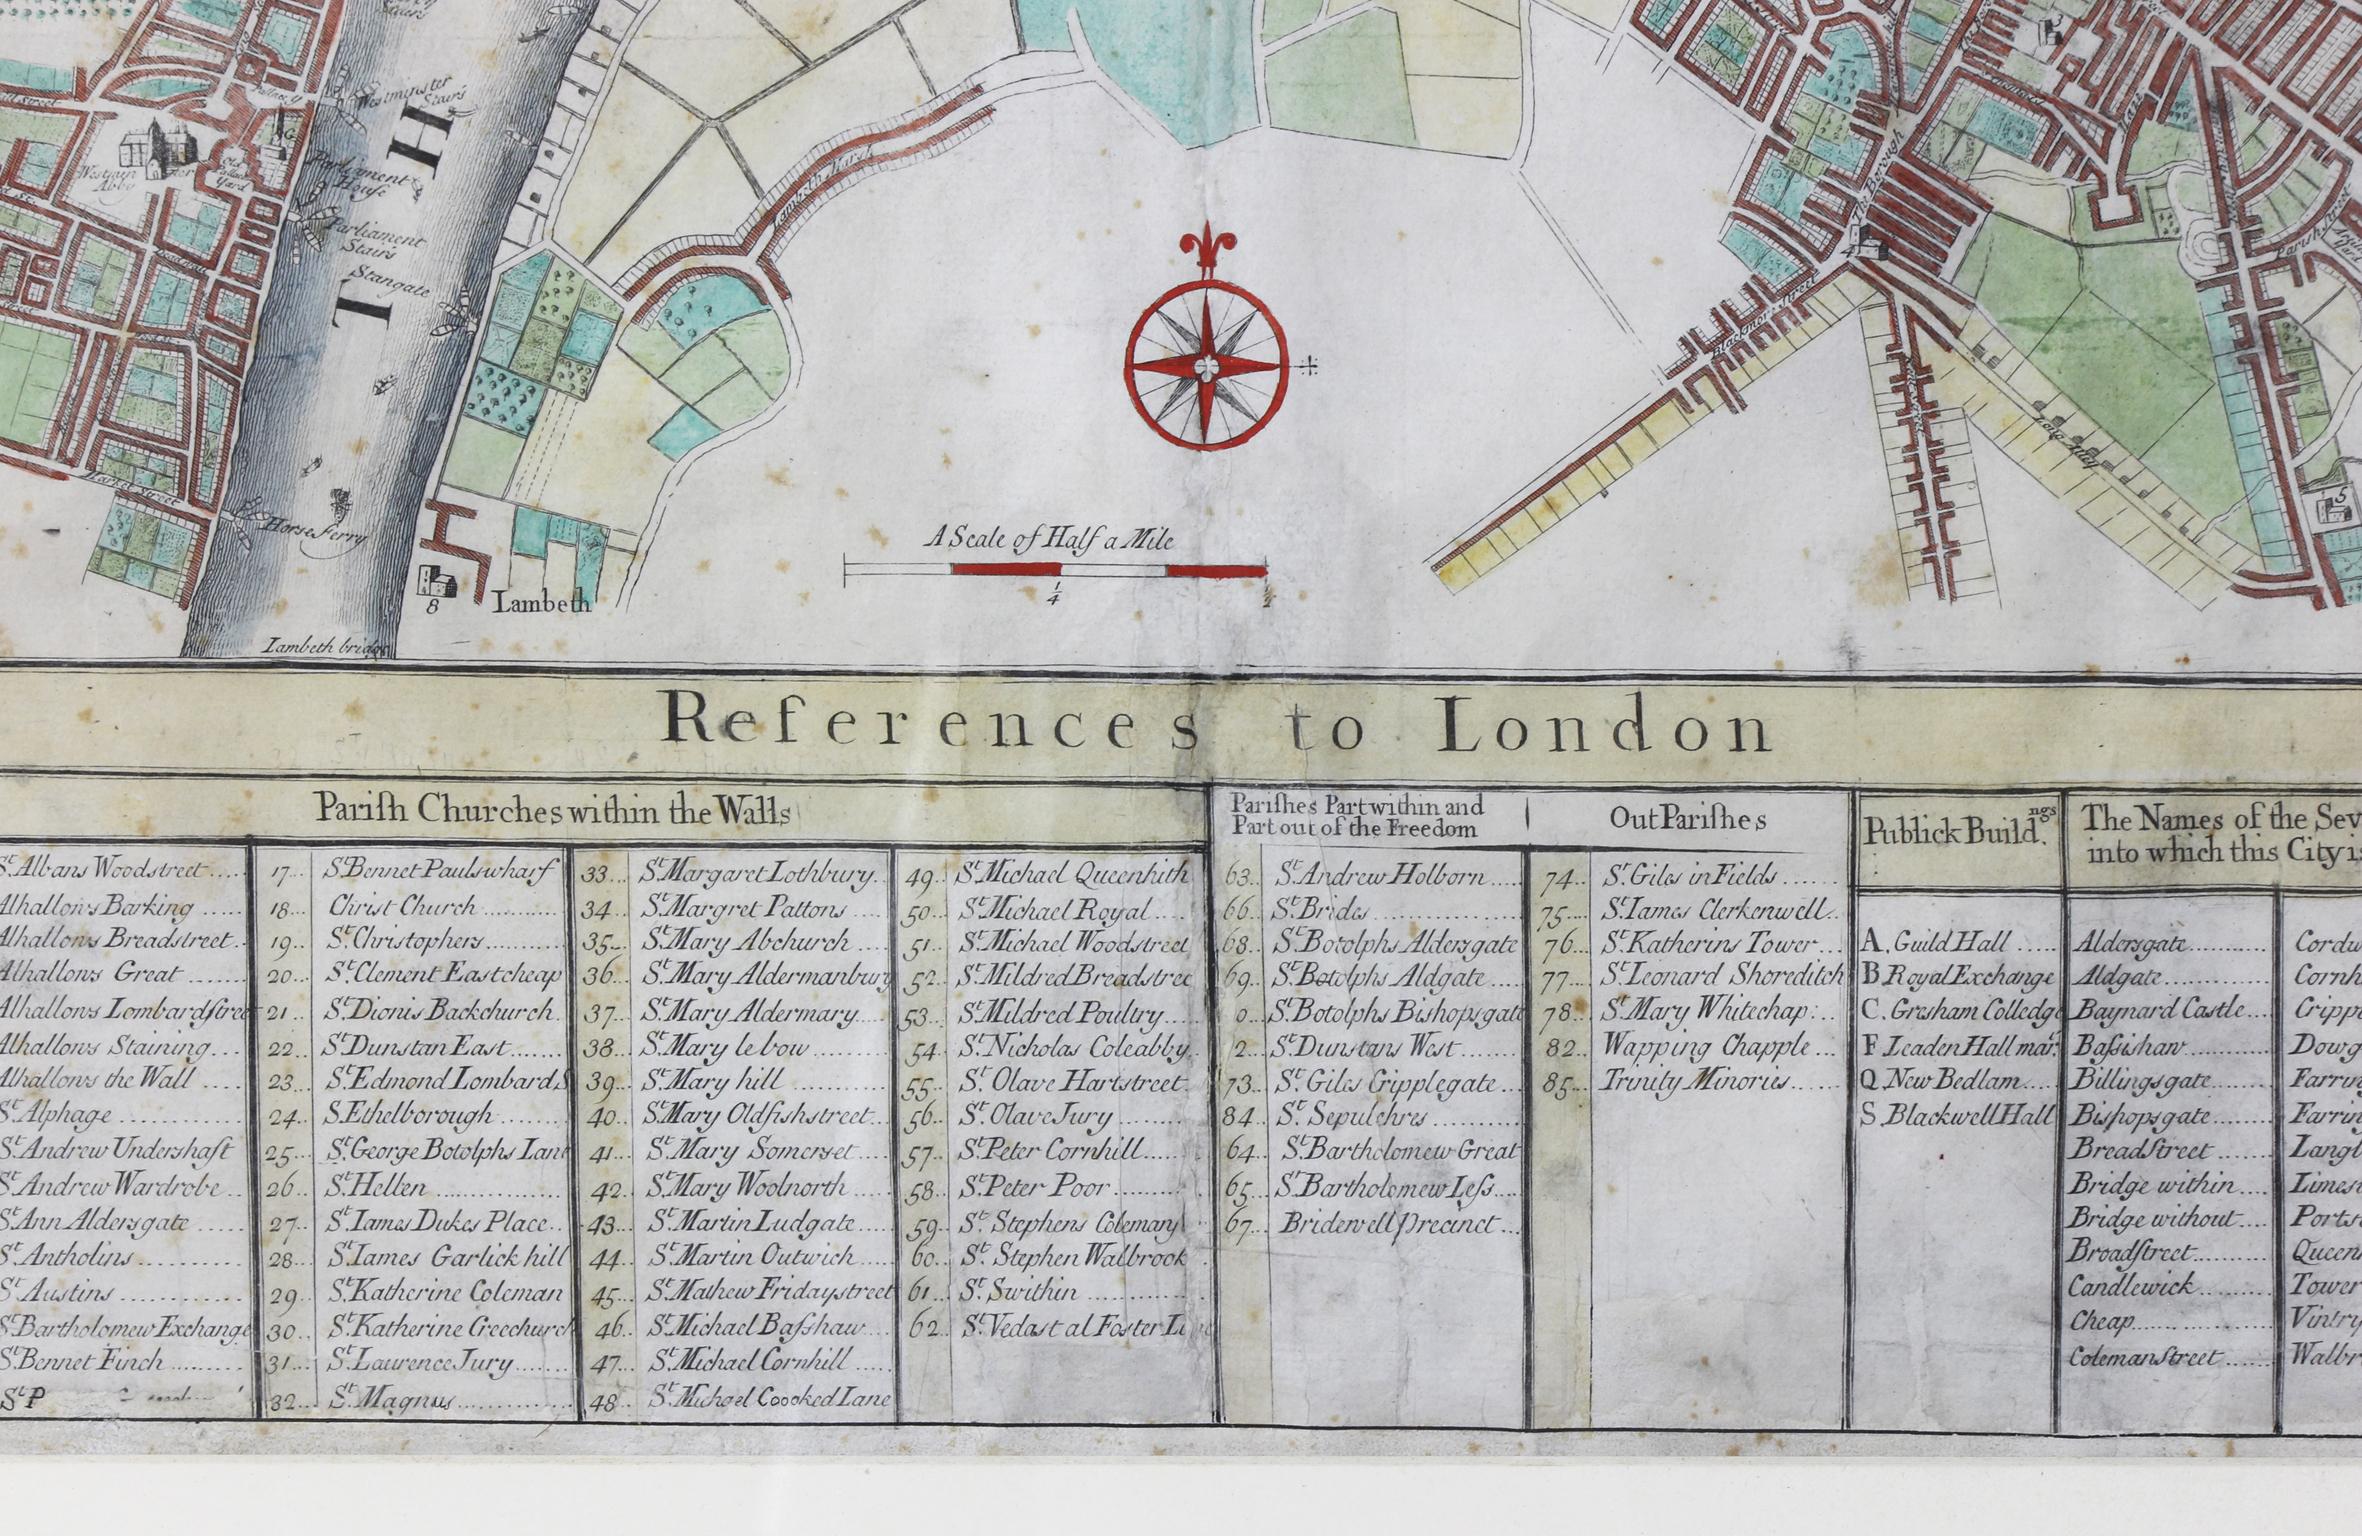 Westminster
Stairs
TH
Pallace Y
G
Westmin ster
Abby
Old
Pallace
Yard
Parliament
House
Parliament
Stairs
Stangate
Market Street
Horse Ferry
8
Lambeth
Lambeth bridge
Lambeth Marsh
A Scale of Half a Mile
1/4
1/2
The Borough
Blackmor Street
Long Alley
Parish Street
3
4
5
References to London
Pariſh Churches within the Walls
Pariſhes Part within and
Part out of the Freedom
Out Pariſhes
Publick Build.ngs
The Names of the Sev
into which this City is
St. Albans Woodstreet....
Alhallows Barking .....
Alhallows Breadstreet..
Alhallows Great .......
Alhallows Lombardſtreet
Alhallows Staining...
Alhallows the Wall ....
St. Alphage ............
St. Andrew Undershaft
St. Andrew Wardrobe..
St. Ann Aldersgate .....
St. Antholins ..........
St. Austins ............
St. Bartholomew Exchange
St. Bennet Finch .........
St. P
17... St. Bennet Paulswharf
18... Christ Church ..........
19... St. Christophers...........
20... St. Clement Eastcheap
21... St. Dionis Backchurch.
22... St. Dunstan East.......
23... St. Edmond Lombard S
24... S. Ethelborough........
25... St. George Botolphs Lane
26... St. Hellen ..............
27... St. Iames Dukes Place..
28... St. Iames Garlick hill
29... St. Katherine Coleman
30... St. Katherine Creechurch
31... St. Laurence Jury.......
32... St. Magnus.............
33... St. Margaret Lothbury..
34... St. Margret Pattons ....
35... St. Mary Abchurch ....
36... St. Mary Aldermanbury
37... St. Mary Aldermary....
38... St. Mary le bow .........
39... St. Mary hill ...........
40... St. Mary Oldfishstreet...
41... St. Mary Somerset....
42... St. Mary Woolnorth ....
43... St. Martin Ludgate.....
44... St. Martin Outwich ....
45... St. Mathew Fridaystreet
46... St. Michael Baſshaw....
47... St. Michael Cornhill .....
48... St. Michael Coooked Lane
49... St. Michael Queenhith
50... St. Michael Royal....
51... St. Michael Woodstreet
52... St. Mildred Breadstree
53... St. Mildred Poultry....
54... St. Nicholas Coleabby
55... St. Olave Hartstreet
56... St. Olave Jury ........
57... St. Peter Cornhill.....
58... St. Peter Poor ..........
59... St. Stephens Colemany
60... St. Stephen Walbrook
61... St. Swithin ............
62... St. Vedast al Foster L
63... St. Andrew Holborn.....
66... St. Brides..............
68... St. Botolphs Aldersgate
69... St. Botolphs Aldgate....
0... St. Botolphs Bishopsgate
2... St. Dunstans West.......
73... St. Giles Cripplegate...
84... St. Sepulchres ..........
64... St. Bartholomew Great
65... St. Bartholomew Leſs....
67... Bridewell precinct...
74... St. Giles in Fields ......
75... St. Iames Clerkenwell..
76... St. Katherins Tower...
77... St. Leonard Shoreditch
78... St. Mary Whitechap:...
82... Wapping Chapple...
85... Trinity Minories......
A. Guild Hall .....
B. Royal Exchange
C. Gresham Colledge
F. Leaden Hall mar.
Q. New Bedlam....
S. Blackwell Hall
Aldersgate...........
Aldgate..............
Baynard Castle....
Baſsishaw...........
Billingsgate.........
Bishopsgate.........
Breadſtreet .......
Bridge within....
Bridge without....
Broadſtreet..........
Candlewick..........
Cheap................
Coleman ſtreet .......
Cordw
Cornh
Cripp
Dowg
Farrin
Farring
Langb
Limes
Ports
Queen
Tower
Vintry
Walbr